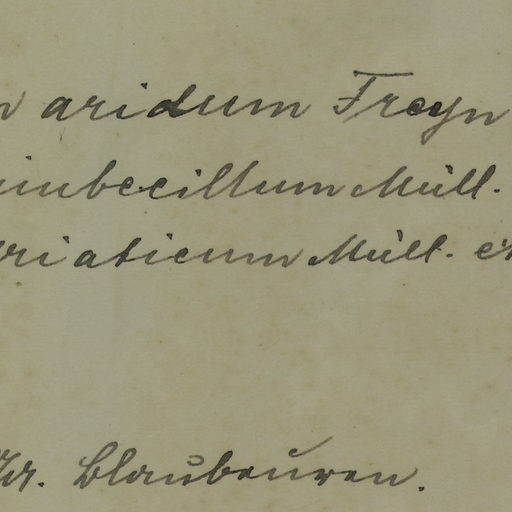 aridum Freyn
imbecillum Müll.
riaticum Müll. et
Blaubeuren.